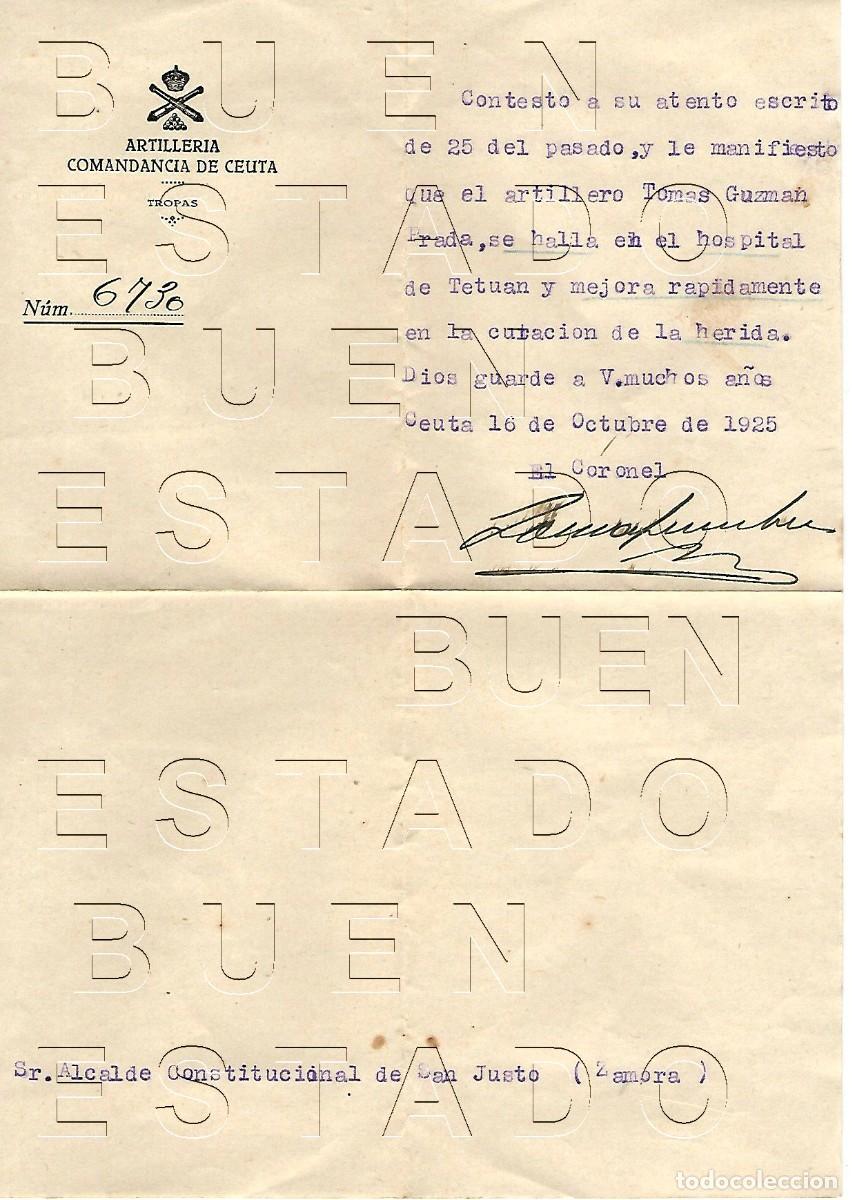 ARTILLERIA
COMANDANCIA DE CEUTA
TROPAS
Núm. 6730
Contesto a su atento escrito
de 25 del pasado, y le manifiesto
que el artillero Tomas Guzman
Prada, se halla en el hospital
de Tetuan y mejora rapidamente
en la curacion de la herida.
Dios guarde a V. muchos años
Ceuta 16 de Octubre de 1925
El Coronel
Sr. Alcalde Constitucional de San Justo ( Zamora )
BUEN
ESTADO
BUEN
ESTADO
BUEN
ESTADO
BUEN
ESTADO
todocoleccion